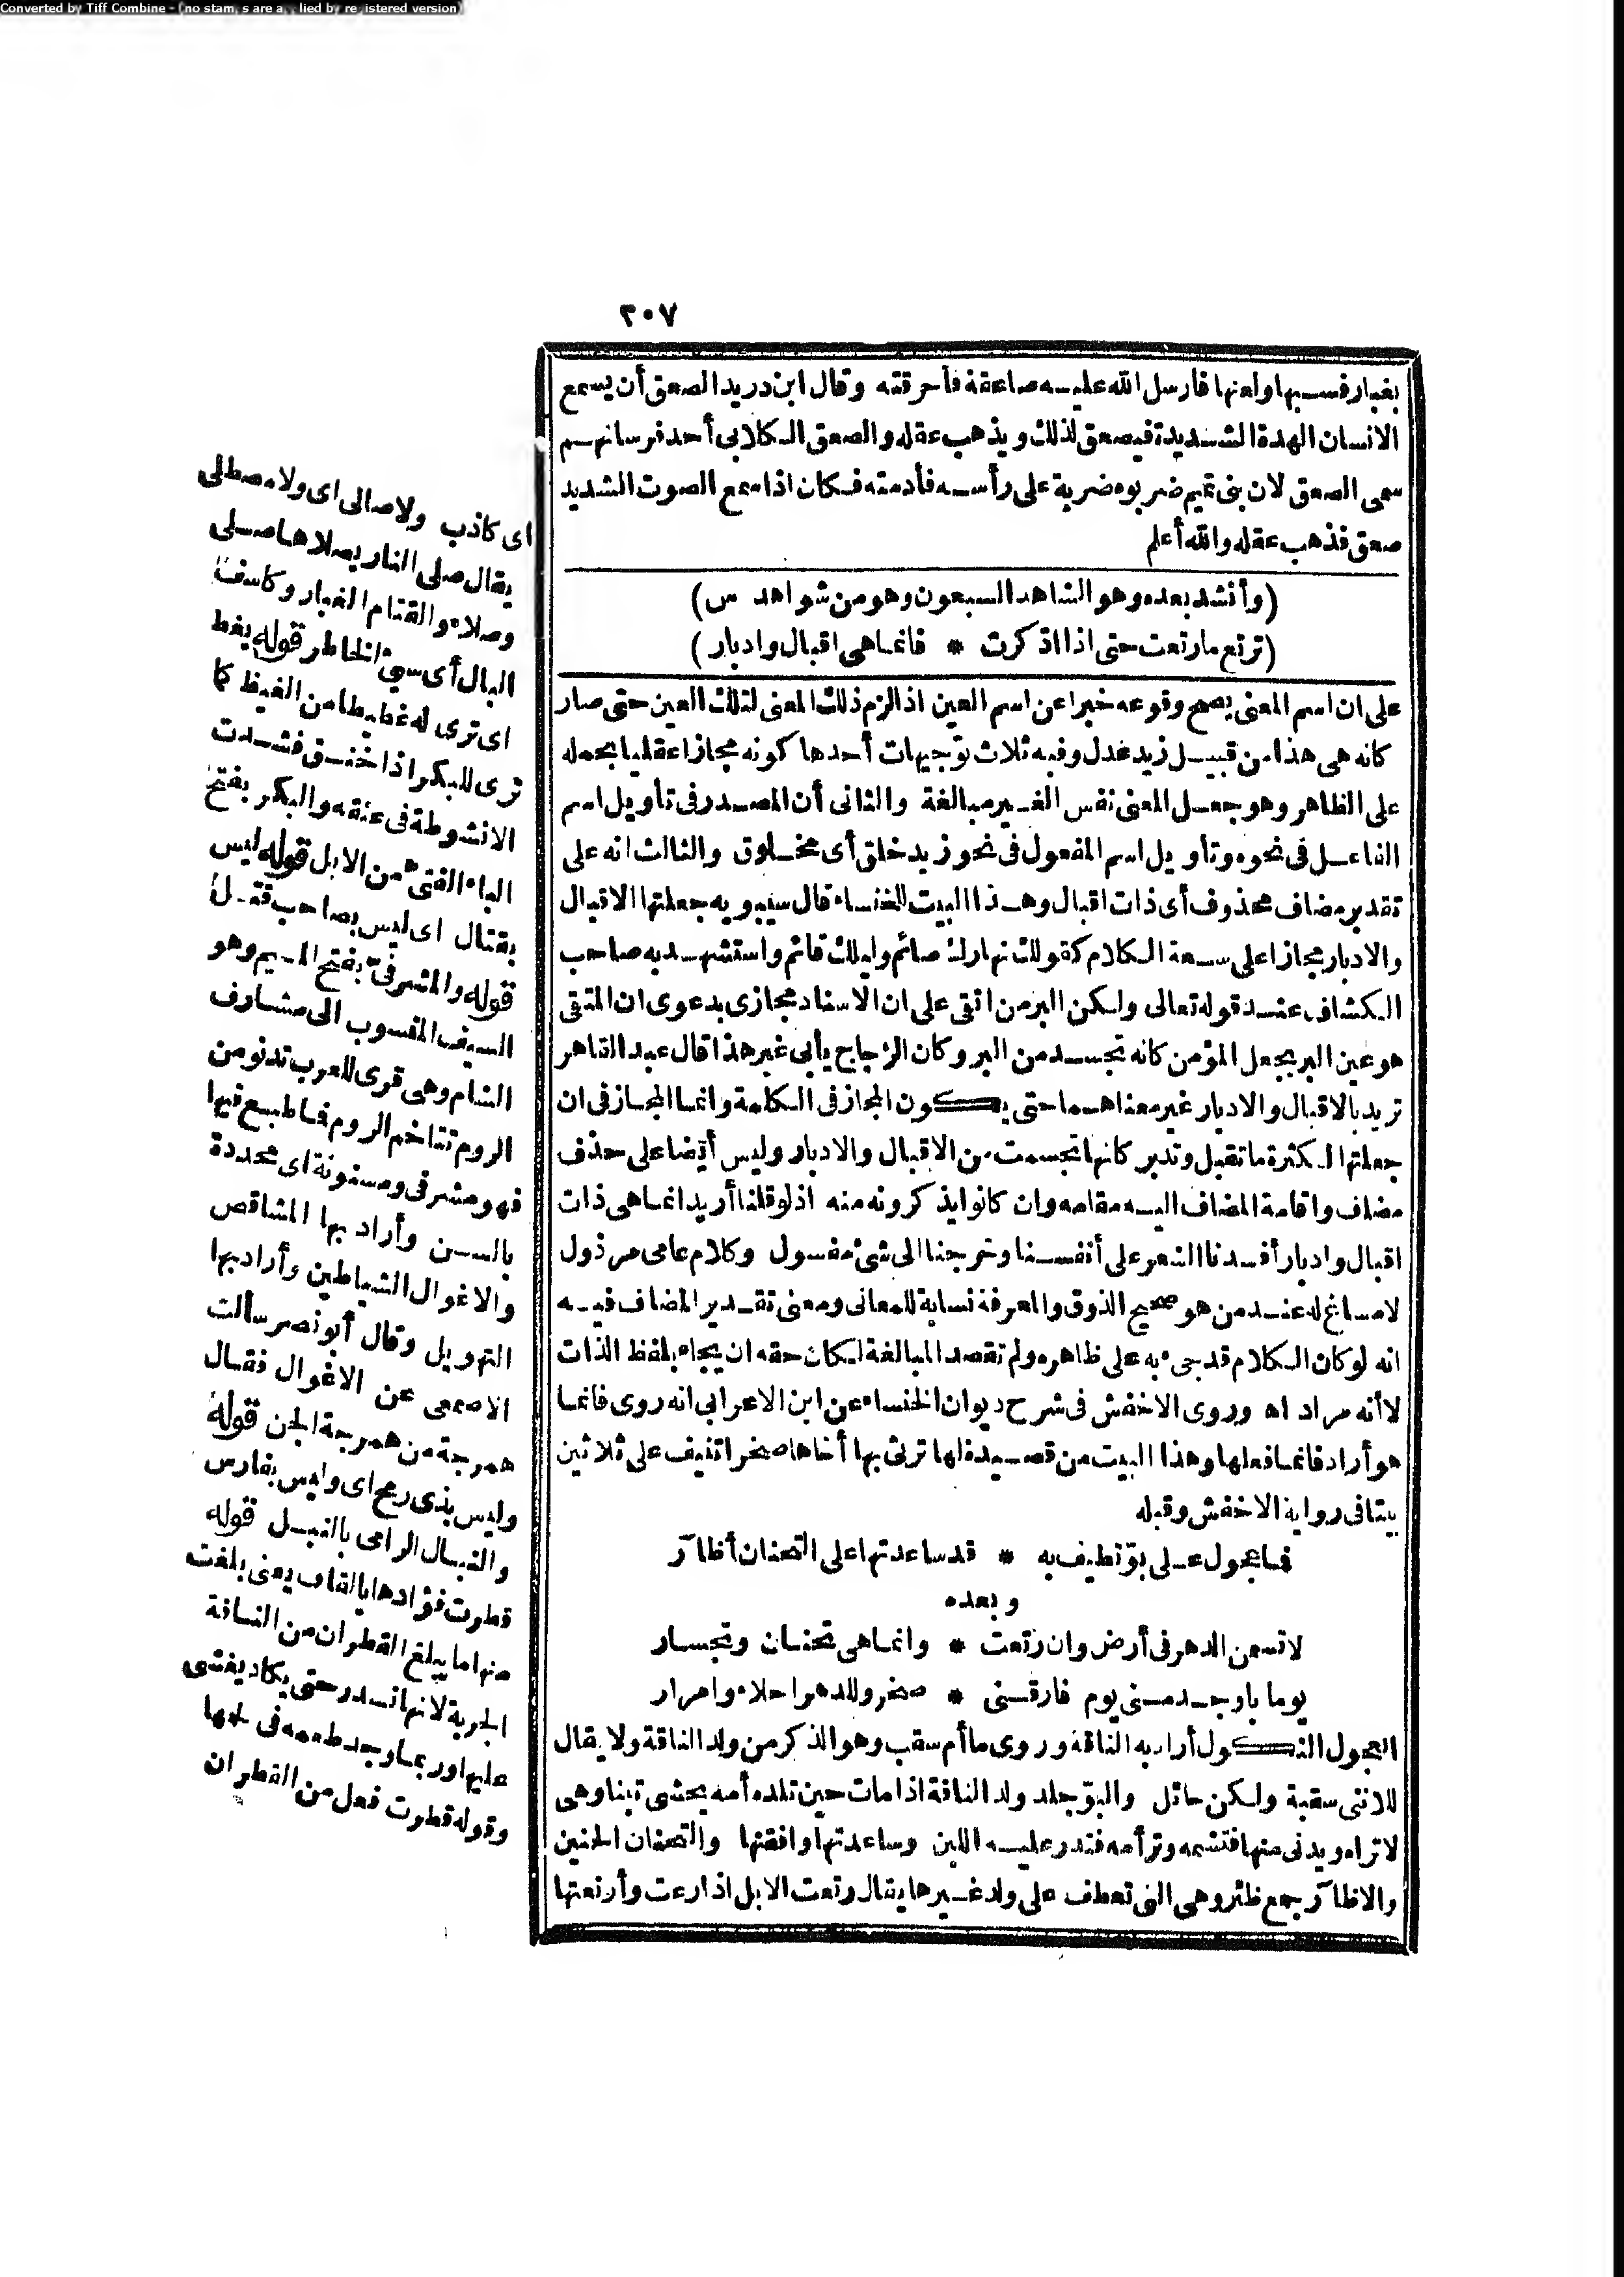 Converted by Tiff Combine - (no stamps are applied by registered version)
٢٠٧
بغبار فسبها ولعنها فارسل الله عليه صاعقة فأحرقته وقال ابن دريد الصعق أن يسمع
الانسان الهدة الشديدة فيصعق لذلك ويذهب عقله والصعق الكلابى أحد فرسانهم
سمى الصعق لان بنى تميم ضربوه ضربة على رأسه فأدمته فكان اذا سمع الصوت الشديد
صعق فذهب عقله والله أعلم
(وأنشد بعده وهو الشاهد السبعون وهو من شواهد س)
(ترتع ما رتعت حتى اذا اذكرت * فانما هى اقبال وادبار)
على ان اسم المعنى يصح وقوعه خبرا عن اسم العين اذا لزم ذلك المعنى لتلك العين حتى صار
كانه هى هذا من قبيل زيد عدل وفيه ثلاث توجيهات أحدها كونه مجازا عقليا بحمله
على الظاهر وهو جعل المعنى نفس الغير مبالغة والثانى أن المصدر فى تأويل اسم
الفاعل فى نحوه وتأويل اسم المفعول فى نحو زيد خلق أى مخلوق والثالث انه على
تقدير مضاف محذوف أى ذات اقبال وهذا البيت للخنساء قال سيبويه جعلتها الاقبال
والادبار مجازا على سعة الكلام كقولك نهارك صائم وليلك قائم واستشهد به صاحب
الكشاف عند قوله تعالى ولكن البر من اتقى على ان الاسناد مجازى بدعوى ان المتقى
هو عين البر بجعل المؤمن كانه تجسد من البر وكان الزجاج يأبى غير هذا قال عبد القاهر
تريد بالاقبال والادبار غير معناهما حتى يكون المجاز فى الكلمة وانما المجاز فى ان
جعلتها لكثرة ما تقبل وتدبر كانها تجسمت من الاقبال والادبار وليس أيضا على حذف
مضاف واقامة المضاف اليه مقامه وان كانوا يذكرونه منه اذ لو قلنا أريد انما هى ذات
اقبال وادبار أفسدنا الشعر على أنفسنا وخرجنا الى شئ مغسول وكلام عامى مرذول
لا مساغ له عند من هو صحيح الذوق والمعرفة نسابة للمعانى ومعنى تقدير المضاف فيه
انه لو كان الكلام قد جىء به على ظاهره ولم تقصد المبالغة لكان حقه ان يجاء بلفظ الذات
لا أنه مراد اه وروى الاخفش فى شرح ديوان الخنساء عن ابن الاعرابى انه روى فانما
هو أراد فانما فعلها وهذا البيت من قصيدة لها ترثى بها أخاها صخرا تنيف على ثلاثين
بيتا فى رواية الاخفش وقبله
فما عجول على بوّ تطيف به * قد ساعدتها على التحنان أظآر
وبعده
لا تسمن الدهر فى أرض وان رتعت * وانما هى تحنان وتجسار
يوما بأوجد منى يوم فارقنى * صخر وللدهر احلاء وامرار
العجول الثكول أراد به الناقة وروى ما أم سقب وهو الذكر من ولد الناقة ولا يقال
للانثى سقبة ولكن حائل والبوّ جلد ولد الناقة اذا مات حين تلده أمه يحشى تبنا وهى
لا تراه ويدنى منها فتشمه وترأمه فتدر عليه اللبن وساعدتها وافقتها والتحنان الحنين
والاظآر جمع ظئر وهى التى تعطف على ولد غيرها يقال رتعت الابل اذا رعت وأرتعتها
اى كاذب ولا صالى اى ولا مصطلى
يقال صلى النار يصلاها صلى
وصلاء والقتام الغبار وكاسف
البال أى سيئ الخاطر قوله يغط
اى ترى له غطيطا من الغيظ كما
ترى للبكر اذا خنق فشدت
الانشوطة فى عنقه والبكر بفتح
الباء الفتىّ من الابل قوله ليس
بقتال اى ليس بصاحب قتل
قوله والمشرفىّ بفتح الميم وهو
السيف المنسوب الى مشارف
الشام وهى قرى للعرب تدنو من
الروم تتاخم الروم فما طبع فيها
فهو مشرفى ومسنونة اى محددة
بالسن وأراد بها المشاقص
والاغوال الشياطين وأراد بها
التهويل وقال أبو نصر سألت
الاصمعى عن الاغوال فقال
همرجة من همرجة الجن قوله
وليس بذى رمح اى وليس بفارس
والنبال الرامى بالنبل قوله
قطرت فؤادها بالقاف يعنى بلغت
منها ما يبلغ القطران من الناقة
الجربة لانها تسدر حتى يكاد يغشى
عليها وربما وجد طعمه فى لحمها
وقوله قطرت فعل من القطران